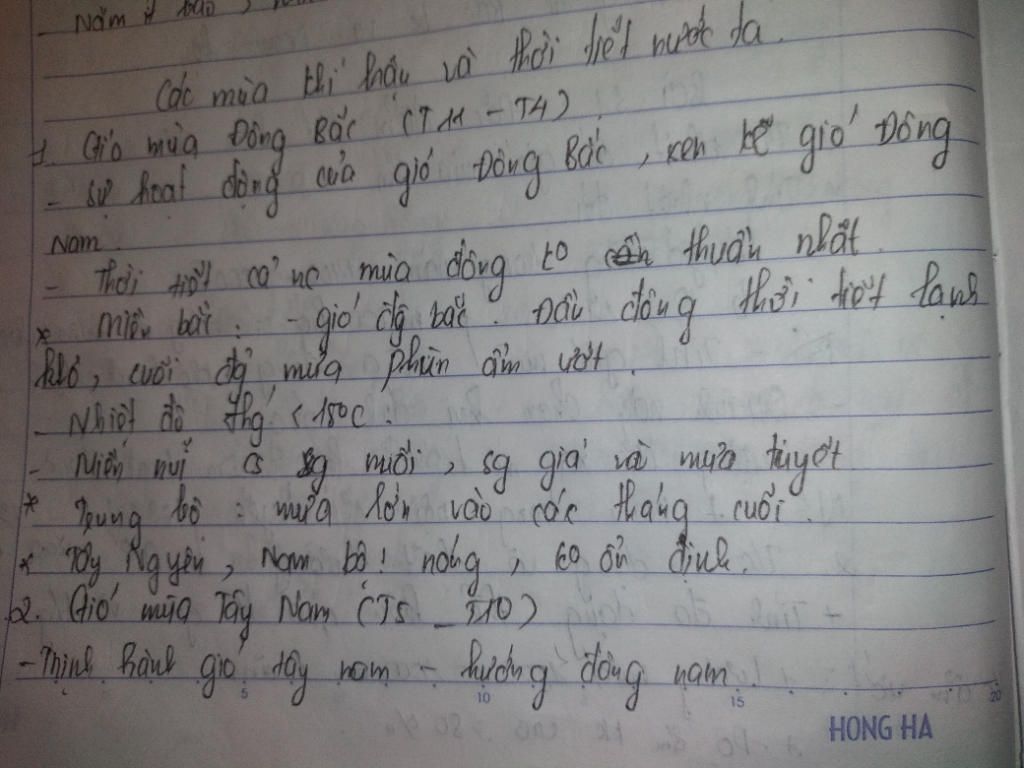 - Năm
Các mùa khí hậu và thời tiết nước ta.
1. Gió mùa Đông Bắc (T11 - T4)
- Sự hoạt động của gió Đông Bắc, xen kẽ gió Đông
Nam.
- Thời tiết cả nc mùa đông to thuần nhất.
* Miền bắc: - gió đg bắc. Đầu đông thời tiết lạnh
khô, cuối đg mưa phùn ẩm ướt.
- Nhiệt độ thg < 15oC.
- Miền núi có sg muối, sg giá và mưa tuyết
* Trung bộ: mưa lớn vào các tháng cuối.
* Tây Nguyên, Nam bộ: nóng, to ổn định.
2. Gió mùa Tây Nam (T5 _ T10)
- Thịnh hành gió tây nam - hướng đông nam
5 10 15 20
HONG HA